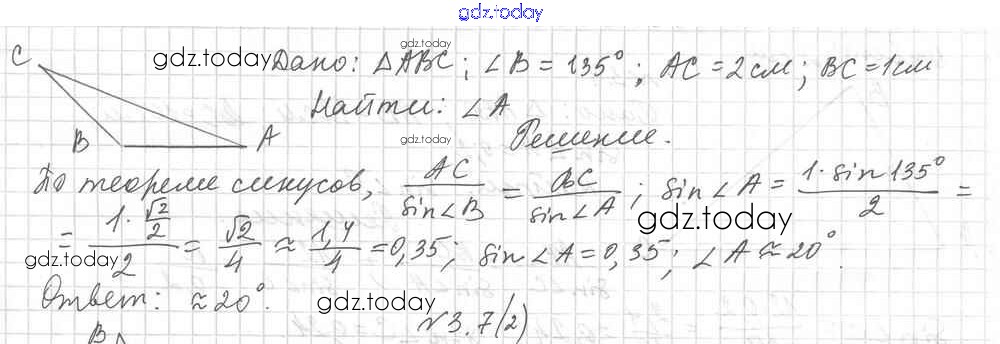 gdz.today
C gdz.today Дано: △ABC; ∠B = 135°; AC = 2см; BC = 1см
gdz.today
Найти: ∠A
B A gdz.today Решение.
По теореме синусов, AC/sin∠B = BC/sin∠A; sin∠A = 1·sin135°/2 =
gdz.today
= 1·√2/2/2 = √2/4 ≈ 1,4/4 = 0,35; sin∠A = 0,35; ∠A ≈ 20°.
gdz.today
Ответ: ≈ 20°. gdz.today
N 3.7(2)
B